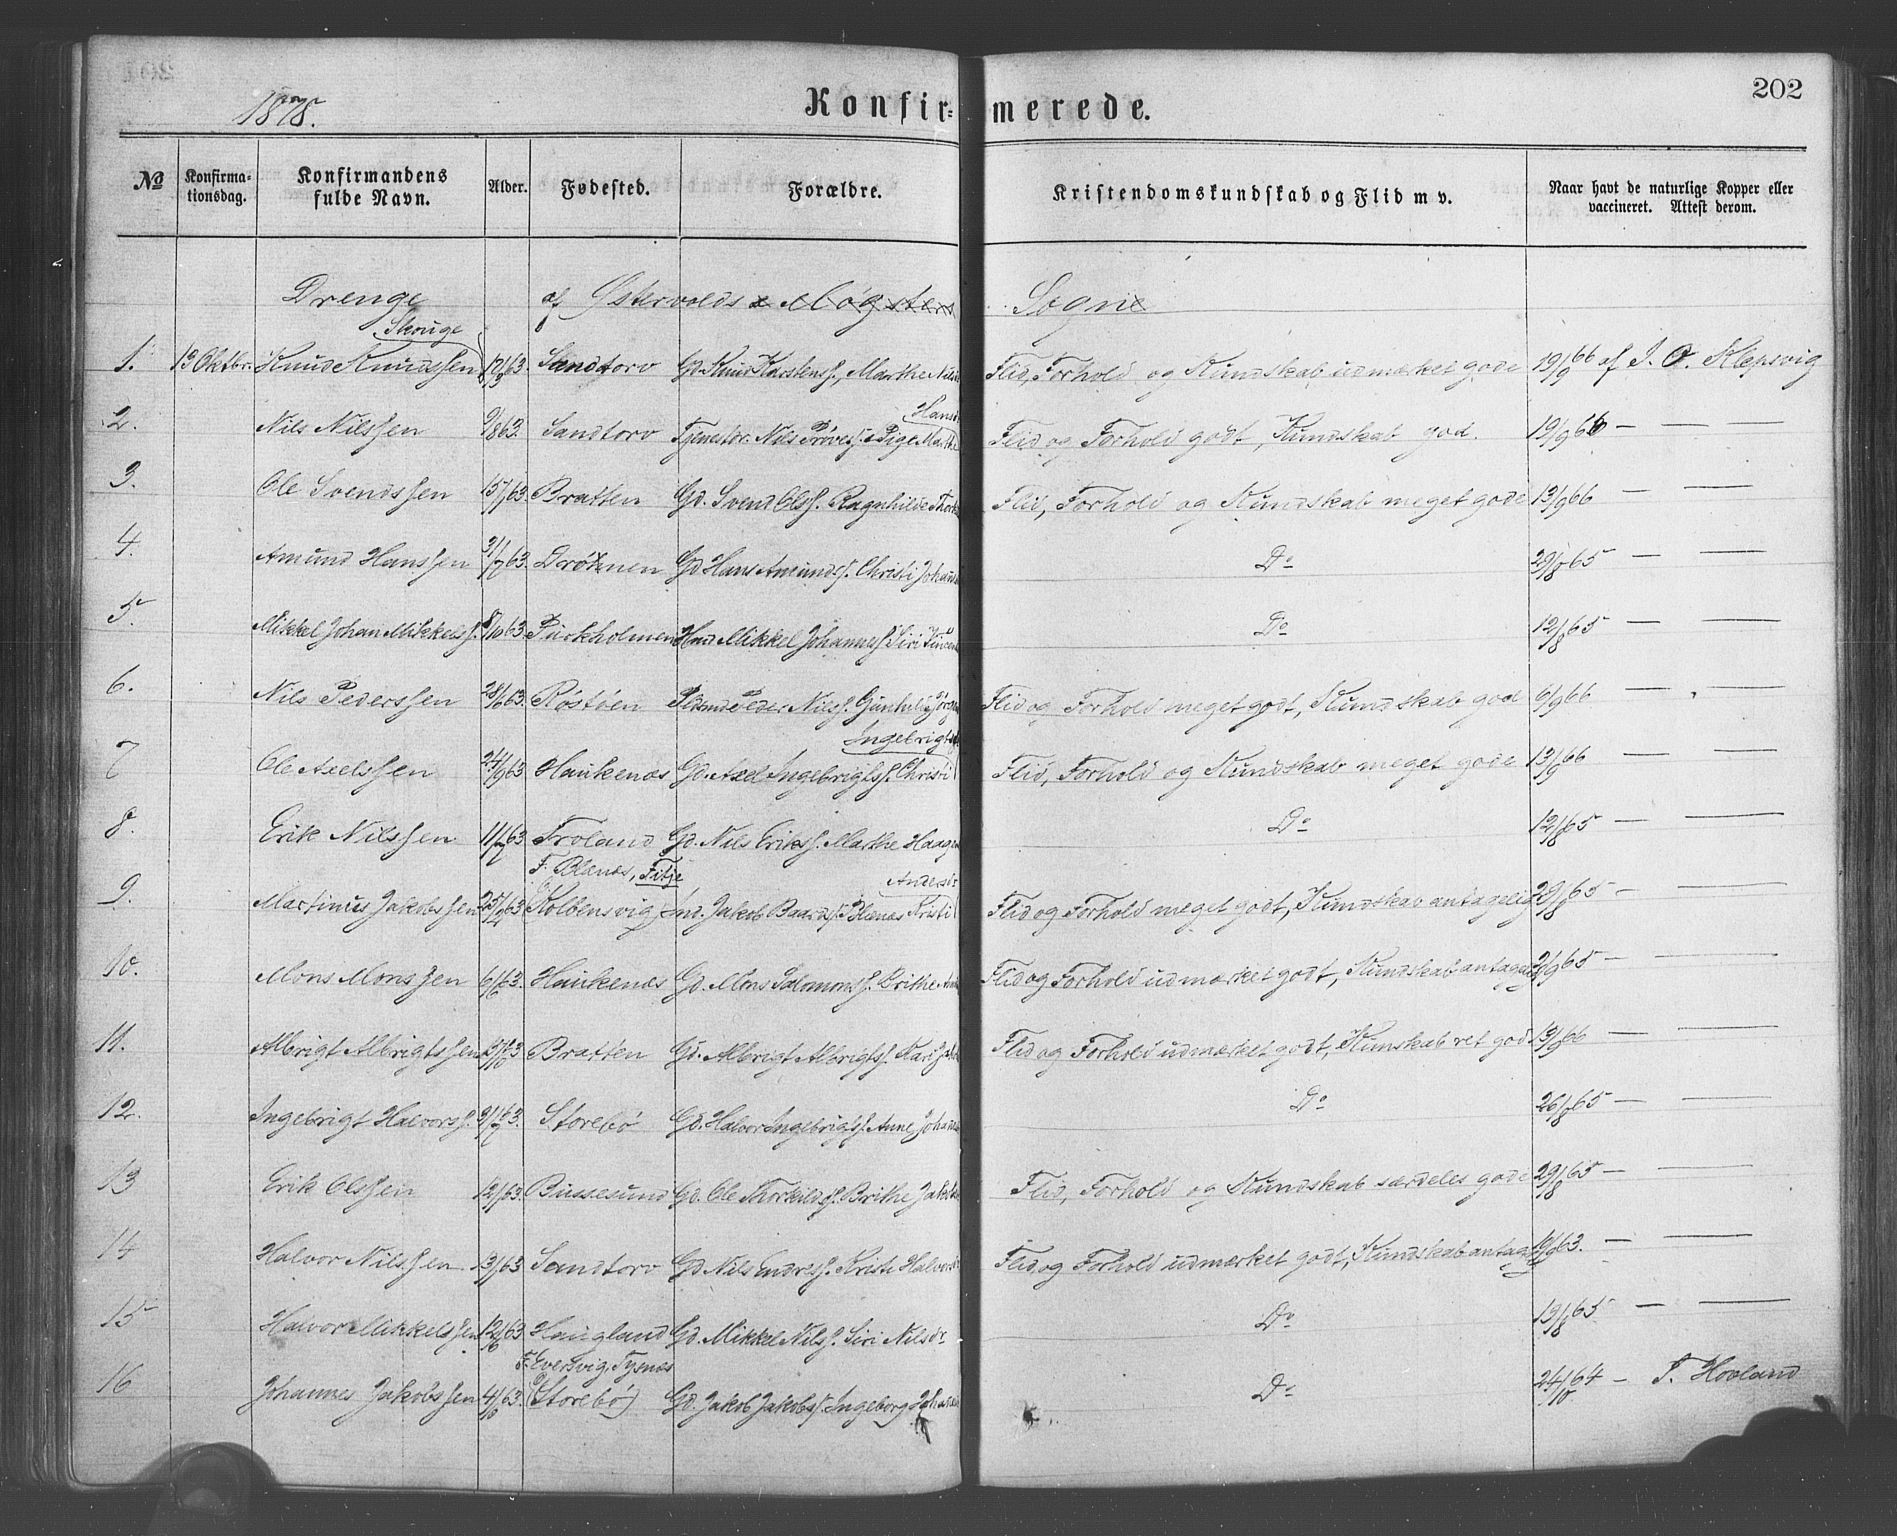 1878.
Konfirmerede.
202
No
Konfirmationsdag.
Konfirmandens fulde Navn.
Alder.
Fødested.
Forældre.
Kristendomskundskab og Flid m v.
Naar havt de naturlige Kopper eller vaccineret. Attest derom.
Drenge af Østervolds & Møgsters Sogne
Skouge
1. 13 Oktbr. Knud Knudssen 63. Sandtorv Gd. Knud Karstens., Marthe Nils Flid, Forhold og Kundskab udmærket gode 19/9 66 af J. O. Klepsvig
Hansd
2. Nils Nilssen 9/8 63. Sandtorv Tjenestdr. Nils Prøves. & Pige Marthe Flid og Forhold godt, Kundskab god. 19/9 66 — —
3. Ole Svendssen 15/7 63. Bratten Gd. Svend Ols. Ragnhilde Thork Flid, Forhold og Kundskab meget gode 13/9 66 — —
4. Amund Hanssen 31/7 63. Drøtnen Gd Hans Amunds. Christi Johan Do 29/8 65 — —
5. Mikkel Johan Mikkels. 8/10 63. Purkholmen Hmd Mikkel Johanness. Siri Do 12/8 65 — —
6. Nils Pederssen 28/6 63. Røstøen Peder Nilss. Gunhild Jørg Flid og Forhold meget godt, Kundskab god 6/9 66 — —
Ingebrigts
7 Ole Axelssen 24/9 63 Haukenæs Gd. Axel Ingebrigtss. Christi Flid, Forhold og Kundskab meget gode 13/9 66 — —
8. Erik Nilssen 11/7 63 Troland Gd. Nils Eriks. Marthe Haag Do 12/8 65 — —
F. Blænæs, Fitje
Andersd
9. Martinus Jakobssen 63 (Kolbensvig) Ind. Jakob Baards. Blænæs Kristi Flid og Forhold meget godt, Kundskab antagelig 29/8 65 — —
10. Mons Monssen 6/6 63. Haukenæs Gd. Mons Salomons. Brithe Flid og Forhold udmærket godt, Kundskab antagelig 65 — —
11. Albrigt Albrigtssen 63 Bratten Gd. Albrigt Albrigtss. Kari Flid og Forhold udmærket godt, Kunskab ret god 13/9 66 — —
12. Ingebrigt Halvorss. 63. Storebø Gd. Halvor Ingebrigtss. Anne Johan Do 26/8 65 — —
13 Erik Olssen 12/7 63 Bussesund Gd. Ole Thorkilds. Brithe Jak Flid, Forhold og Kundskab særdeles gode 29/8 65 — —
14 Halvor Nilssen 63 Sandtorv Gd Nils Endres. Kristi Halvors Flid og Forhold udmærket godt, Kundskab antagel 63. — —
15 Halvor Mikkelssen 12/6 63 Haugland Gd. Mikkel Nils. Siri Nilsdr Do 19/8 65 — —
F. Eversvig, Tysnæs
16 Johannes Jakobssen 63. (Storebø) Gd. Jakob Jakobs. Ingeborg Johan Do 24/10 64 — T. Hovland